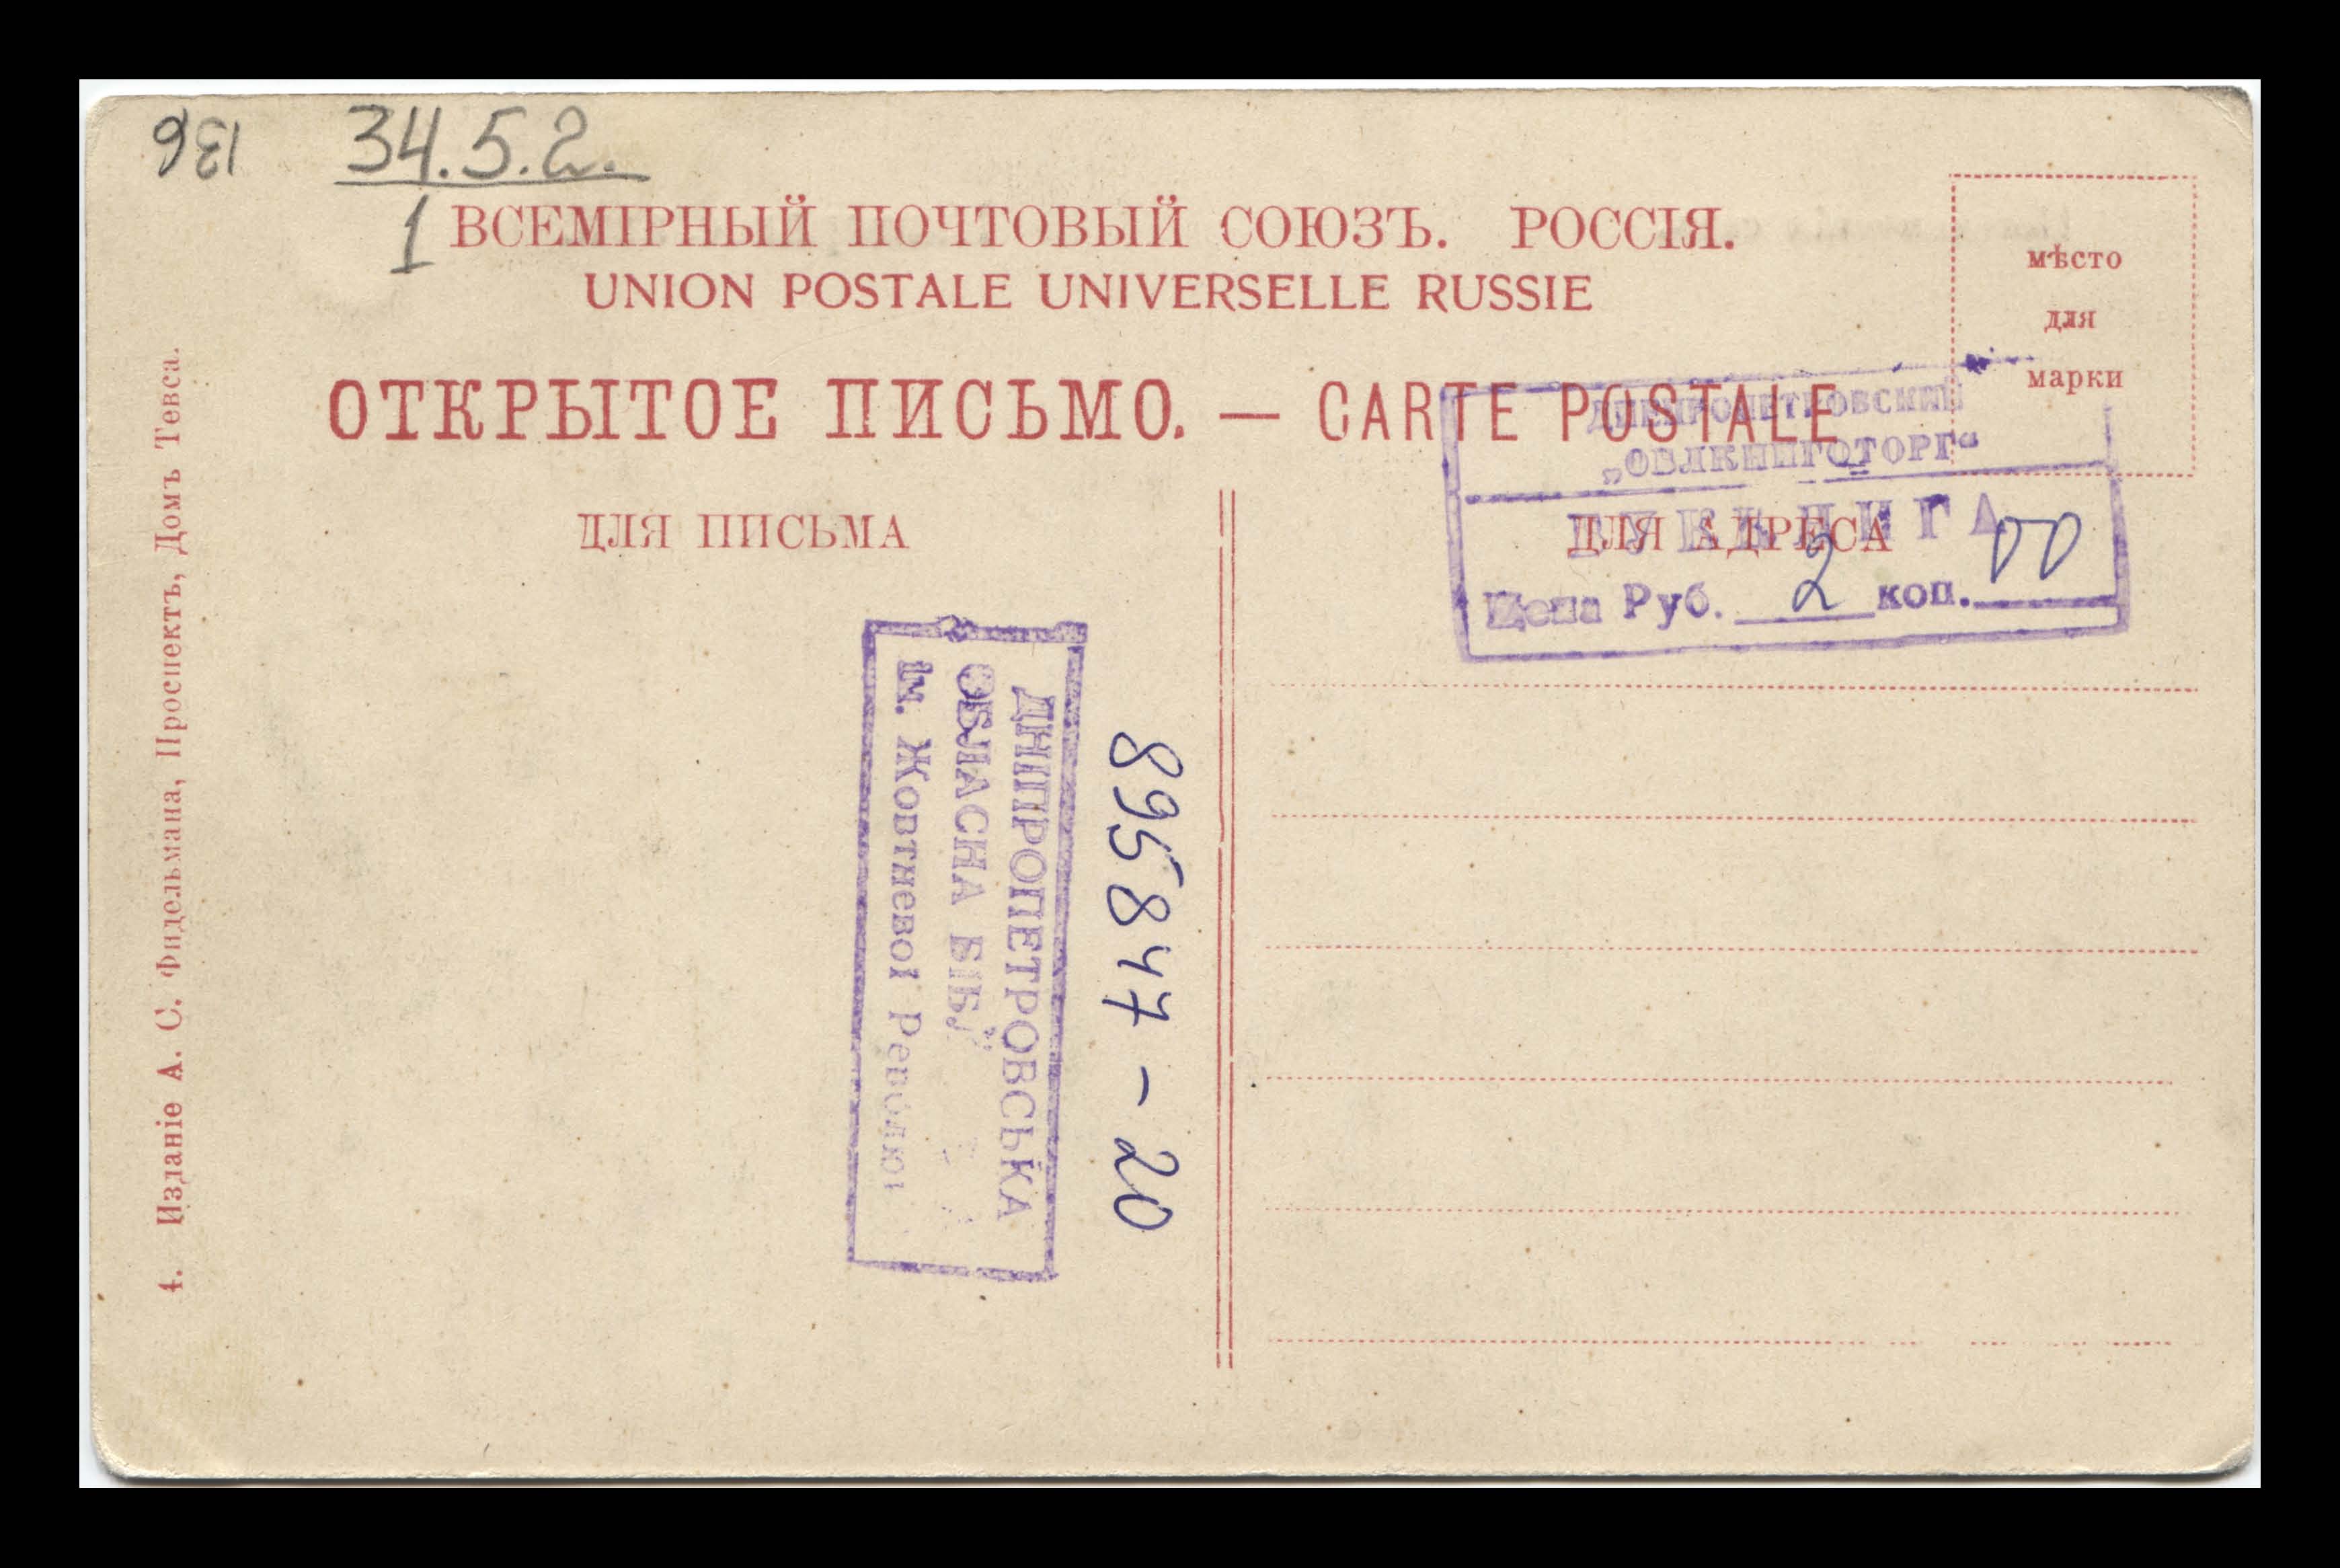 136
34.5.2.
1
ВСЕМІРНЫЙ ПОЧТОВЫЙ СОЮЗЪ. РОССІЯ.
UNION POSTALE UNIVERSELLE RUSSIE
мѣсто
для
марки
ОТКРЫТОЕ ПИСЬМО. — CARTE POSTALE
ДЛЯ ПИСЬМА
ДЛЯ АДРЕСА
ДНЕПРОПЕТРОВСКИЙ
„ОБЛКНИГОТОРГ“
БУККНИГА
Цена Руб. 2 коп. 00
ДНІПРОПЕТРОВСЬКА
ОБЛАСНА БІБЛ
Ім. Жовтневої Револю
895847 - 20
4. Изданіе А. С. Фидельмана, Проспектъ, Домъ Тевса.